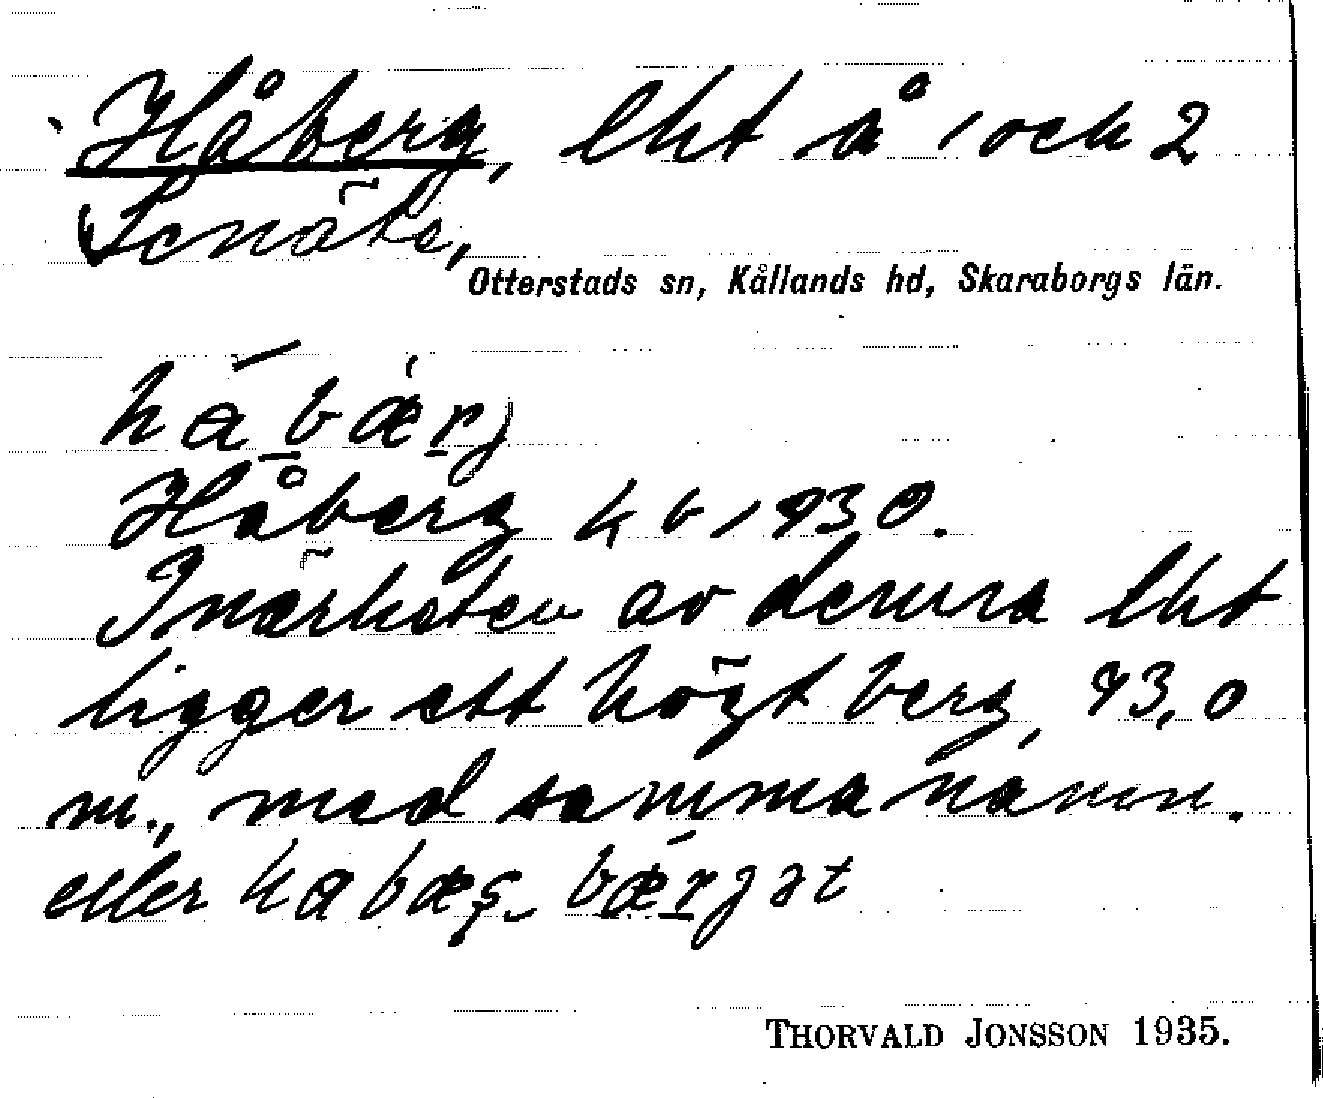 Håberg, lht å 1 och 2
Senäte,
Otterstads sn, Kållands hd, Skaraborgs län.
håbærj
Håberg kb 1930.
I närheten av denna lht
ligger ett högt berg, 73,0
m., med samma namn.
eller habæş bærjət
THORVALD JONSSON 1935.